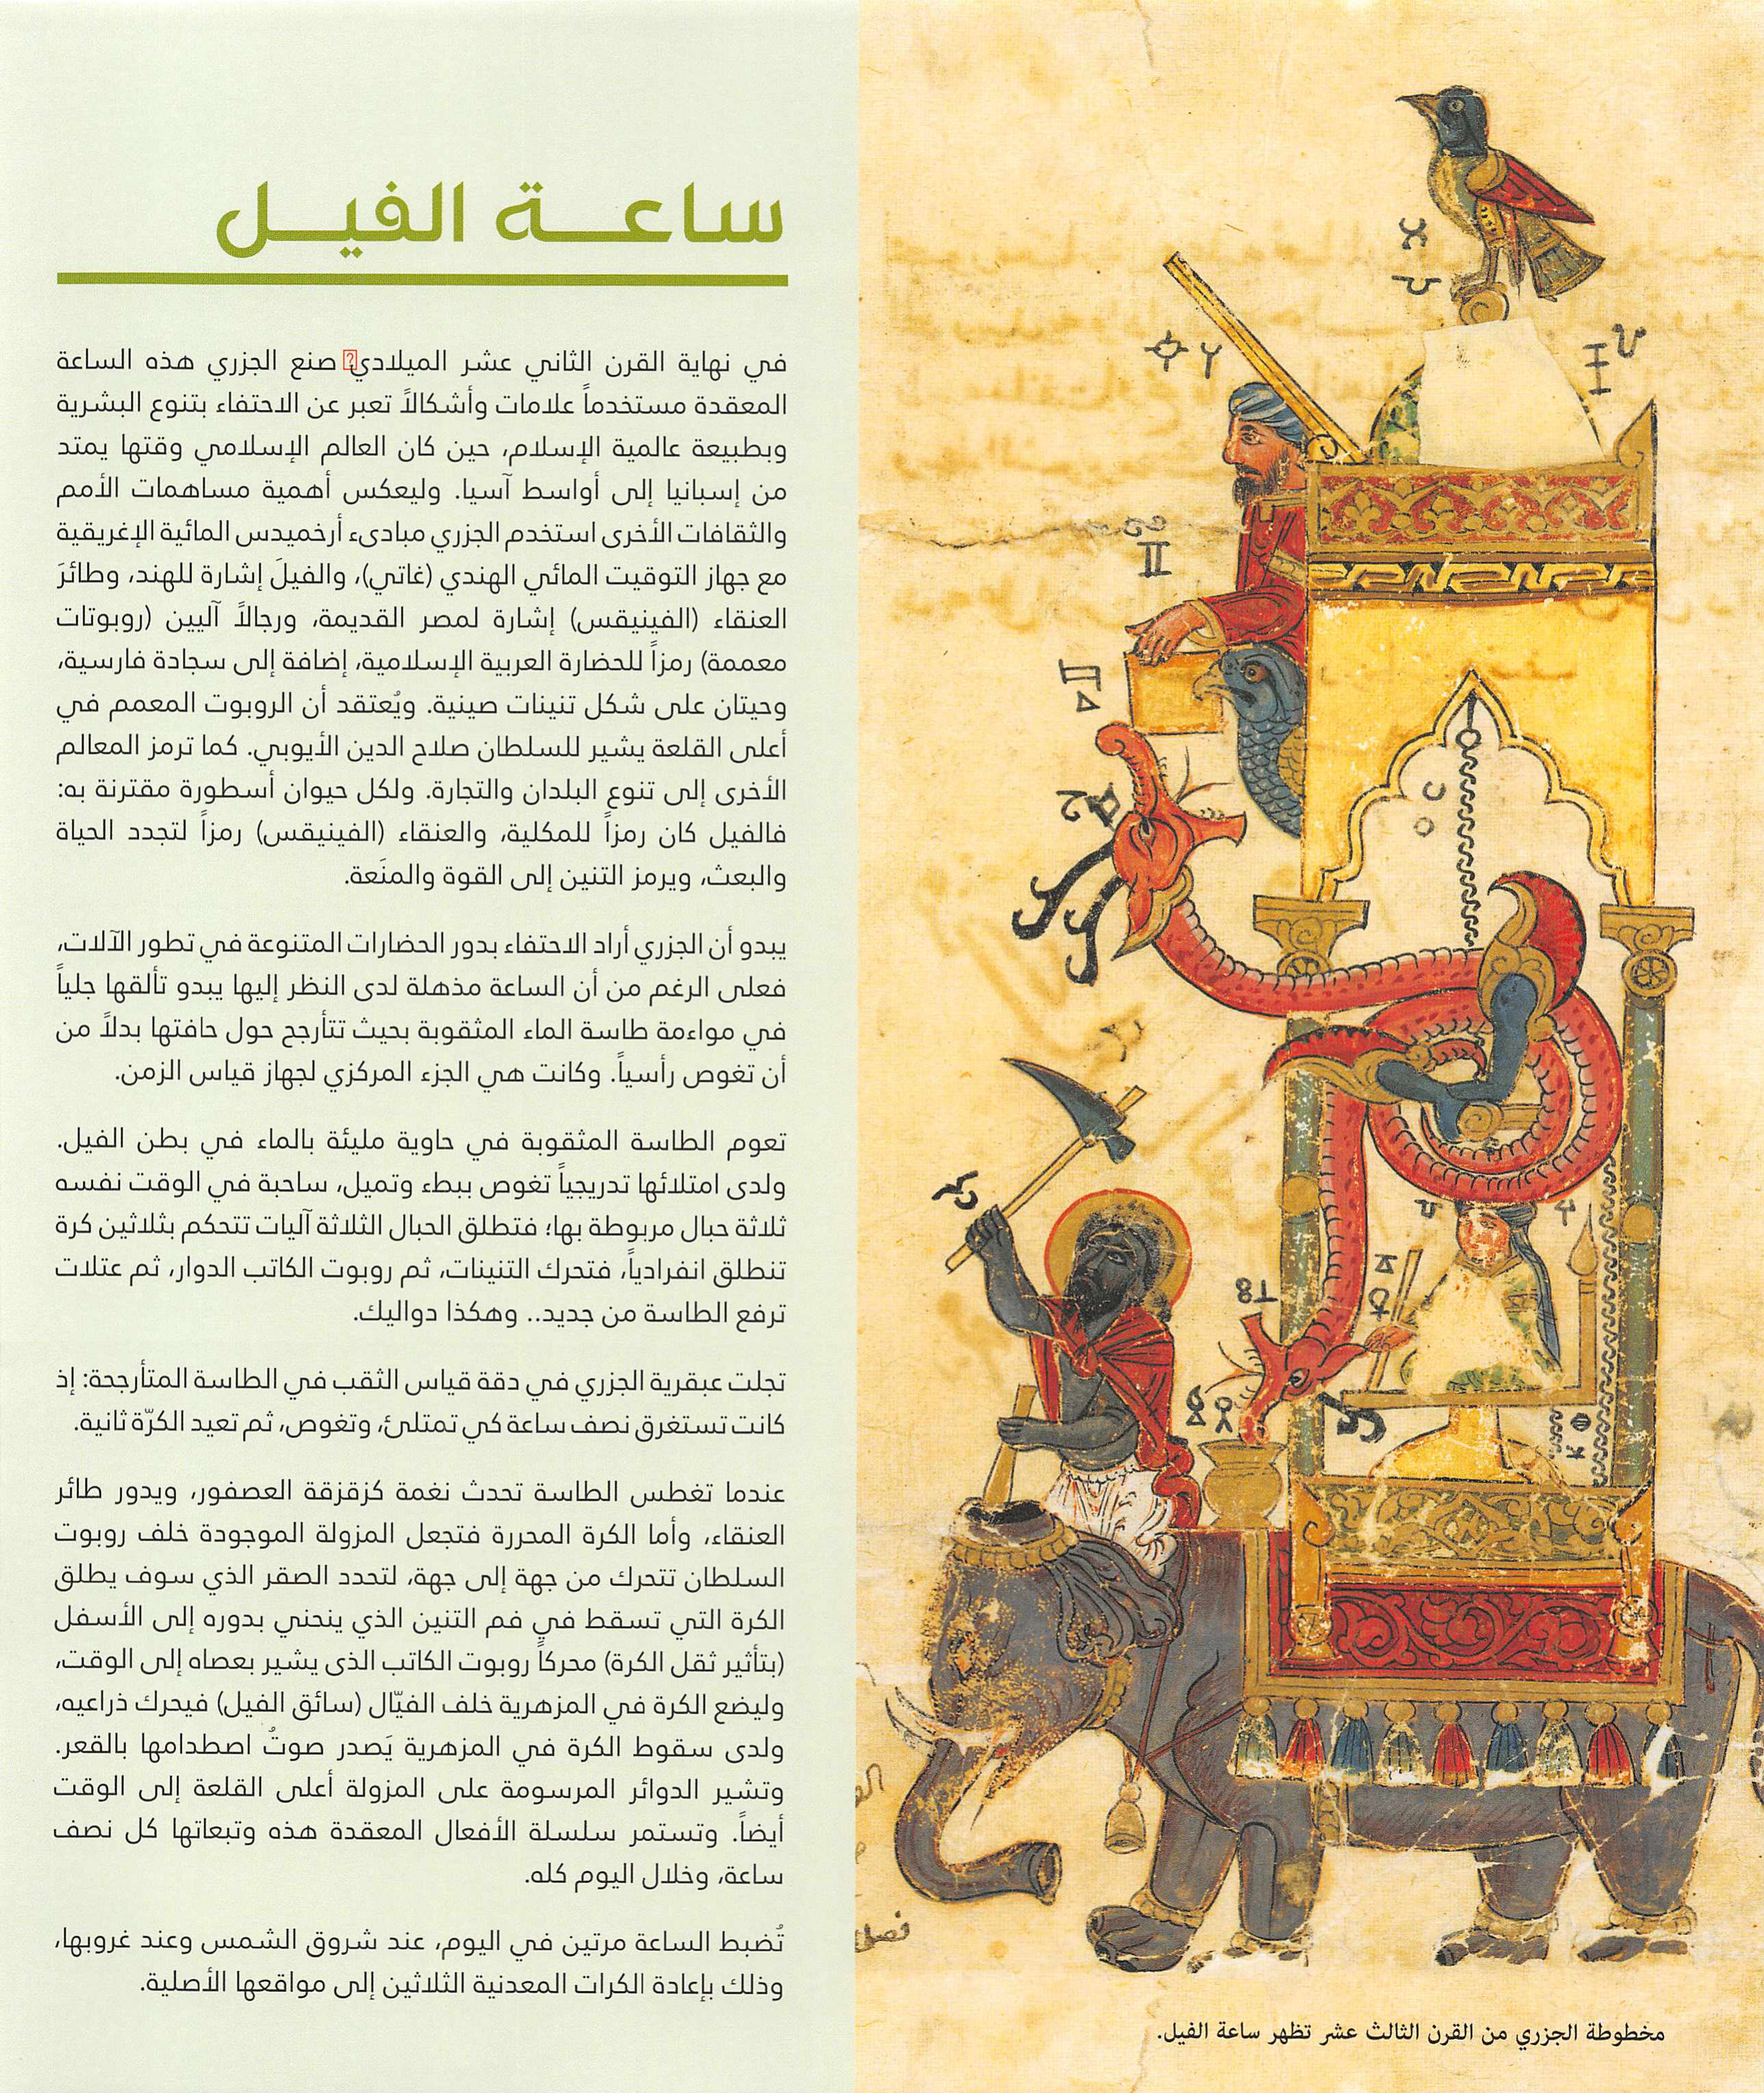 ساعة الفيل
في نهاية القرن الثاني عشر الميلادي صنع الجزري هذه الساعة
المعقدة مستخدماً علامات وأشكالاً تعبر عن الاحتفاء بتنوع البشرية
وبطبيعة عالمية الإسلام، حين كان العالم الإسلامي وقتها يمتد
من إسبانيا إلى أواسط آسيا. وليعكس أهمية مساهمات الأمم
والثقافات الأخرى استخدم الجزري مبادىء أرخميدس المائية الإغريقية
مع جهاز التوقيت المائي الهندي (غاتي)، والفيلَ إشارة للهند، وطائرَ
العنقاء (الفينيقس) إشارة لمصر القديمة، ورجالاً آليين (روبوتات
معممة) رمزاً للحضارة العربية الإسلامية، إضافة إلى سجادة فارسية،
وحيتان على شكل تنينات صينية. ويُعتقد أن الروبوت المعمم في
أعلى القلعة يشير للسلطان صلاح الدين الأيوبي. كما ترمز المعالم
الأخرى إلى تنوع البلدان والتجارة. ولكل حيوان أسطورة مقترنة به:
فالفيل كان رمزاً للمكلية، والعنقاء (الفينيقس) رمزاً لتجدد الحياة
والبعث، ويرمز التنين إلى القوة والمنَعة.
يبدو أن الجزري أراد الاحتفاء بدور الحضارات المتنوعة في تطور الآلات،
فعلى الرغم من أن الساعة مذهلة لدى النظر إليها يبدو تألقها جلياً
في مواءمة طاسة الماء المثقوبة بحيث تتأرجح حول حافتها بدلاً من
أن تغوص رأسياً. وكانت هي الجزء المركزي لجهاز قياس الزمن.
تعوم الطاسة المثقوبة في حاوية مليئة بالماء في بطن الفيل.
ولدى امتلائها تدريجياً تغوص ببطء وتميل، ساحبة في الوقت نفسه
ثلاثة حبال مربوطة بها؛ فتطلق الحبال الثلاثة آليات تتحكم بثلاثين كرة
تنطلق انفرادياً، فتحرك التنينات، ثم روبوت الكاتب الدوار، ثم عتلات
ترفع الطاسة من جديد.. وهكذا دواليك.
تجلت عبقرية الجزري في دقة قياس الثقب في الطاسة المتأرجحة: إذ
كانت تستغرق نصف ساعة كي تمتلئ، وتغوص، ثم تعيد الكرّة ثانية.
عندما تغطس الطاسة تحدث نغمة كزقزقة العصفور، ويدور طائر
العنقاء، وأما الكرة المحررة فتجعل المزولة الموجودة خلف روبوت
السلطان تتحرك من جهة إلى جهة، لتحدد الصقر الذي سوف يطلق
الكرة التي تسقط في فم التنين الذي ينحني بدوره إلى الأسفل
(بتأثير ثقل الكرة) محركاً روبوت الكاتب الذى يشير بعصاه إلى الوقت،
وليضع الكرة في المزهرية خلف الفيّال (سائق الفيل) فيحرك ذراعيه،
ولدى سقوط الكرة في المزهرية يَصدر صوتُ اصطدامها بالقعر.
وتشير الدوائر المرسومة على المزولة أعلى القلعة إلى الوقت
أيضاً. وتستمر سلسلة الأفعال المعقدة هذه وتبعاتها كل نصف
ساعة، وخلال اليوم كله.
تُضبط الساعة مرتين في اليوم، عند شروق الشمس وعند غروبها،
وذلك بإعادة الكرات المعدنية الثلاثين إلى مواقعها الأصلية.
مخطوطة الجزري من القرن الثالث عشر تظهر ساعة الفيل.